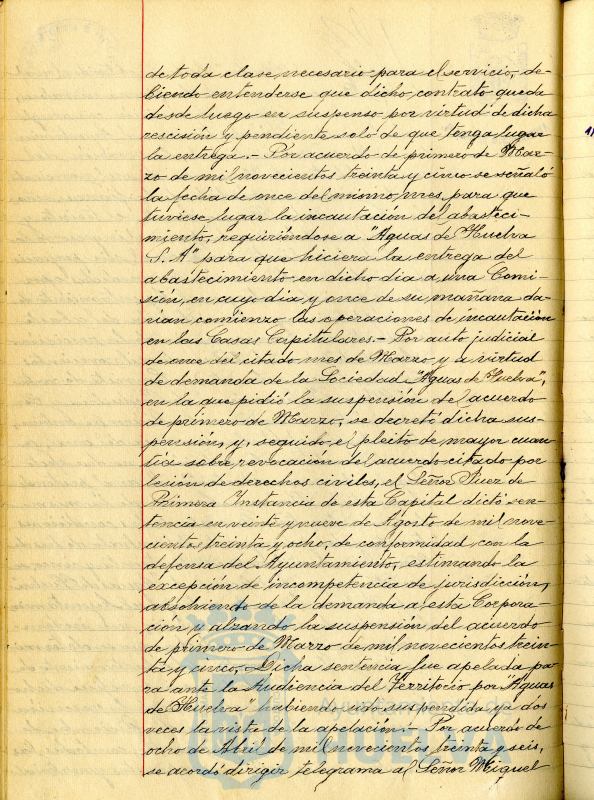 de toda clase necesario para el servicio, de-
biendo entenderse que dicho contrato queda
desde luego en suspenso por virtud de dicha
rescisión y pendiente solo de que tenga lugar
la entrega.- Por acuerdo de primero de Mar-
zo de mil novecientos treinta y cinco se señaló
la fecha de once del mismo mes, para que
tuviese lugar la incautación del abasteci-
miento, requiriéndose a "Aguas de Huelva
S.A" para que hiciera la entrega del
abastecimiento en dicho dia a una Comi-
sión, en cuyo dia y once de su mañana da-
rian comienzo las operaciones de incautación
en las Casas Capitulares.- Por auto judicial
de once del citado mes de Marzo, y a virtud
de demanda de la Sociedad "Aguas de Huelva",
en la que pidió la suspensión del acuerdo
de primero de Marzo, se decretó dicha sus-
pensión, y, seguido el pleito de mayor cuan-
tía sobre revocación del acuerdo citado por
lesión de derechos civiles, el Señor Juez de
Primera Instancia de esta Capital dictó sen-
tencia en veinte y nueve de Agosto de mil nove-
cientos treinta y ocho, de conformidad con la
defensa del Ayuntamiento, estimando la
excepción de incompetencia de jurisdicción,
absolviendo de la demanda a esta Corpora-
ción y alzando la suspensión del acuerdo
de primero de Marzo de mil novecientos trein-
ta y cinco. Dicha sentencia fue apelada pa-
ra ante la Audiencia del Territorio por "Aguas
de Huelva" habiendo sido suspendida ya dos
veces la vista de la apelación.- Por acuerdo de
ocho de Abril de mil novecientos treinta y seis,
se acordó dirigir telegrama al Señor Miguel
HUELVA